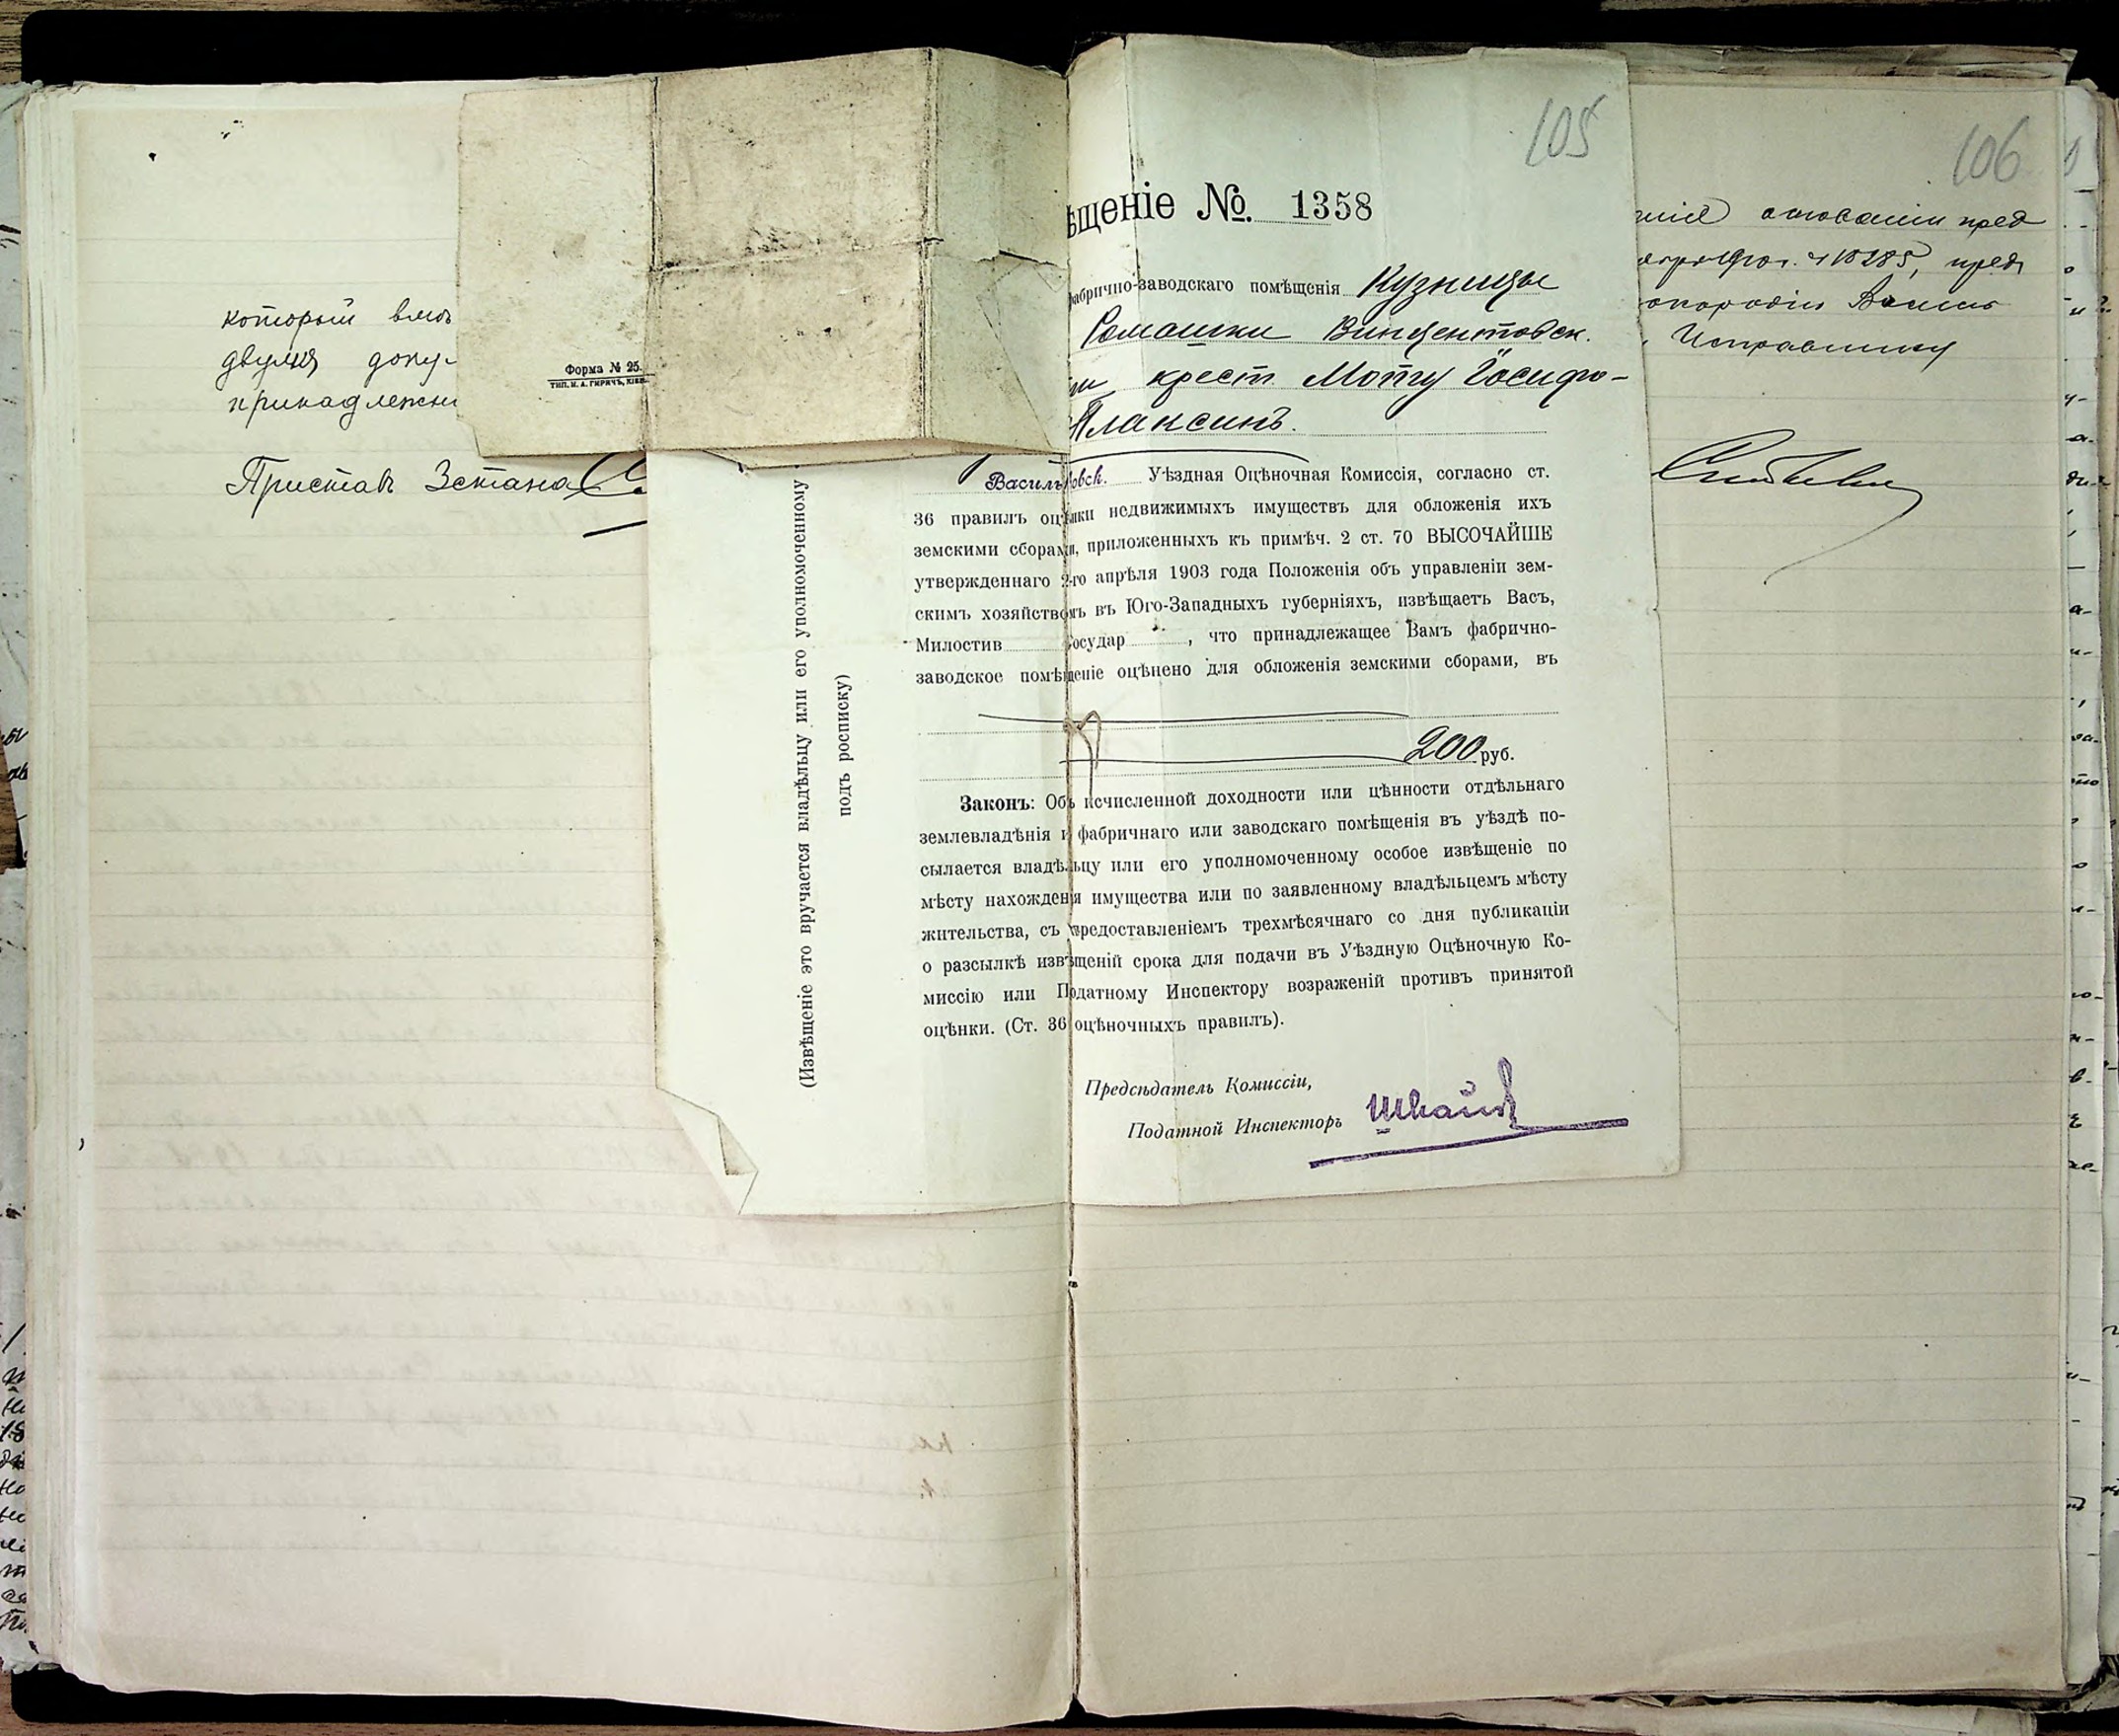 который вмѣ
двумя доку-
принадлежа
Приставъ 3 стана
Форма № 25.
ТИП. И. А. ГИРИЧЪ, КІЕВ
(Извѣщеніе это вручается владѣльцу или его уполномоченному
подъ росписку)
105
ѣщеніе №. 1358
фабрично-заводскаго помѣщенія Кузницы
Ромашки Винцентовск.
крест Моту Іосифо-
Плаксинъ.
Васильковск. Уѣздная Оцѣночная Комиссія, согласно ст.
36 правилъ оцѣнки недвижимыхъ имуществъ для обложенія ихъ
земскими сборами, приложенныхъ къ примѣч. 2 ст. 70 ВЫСОЧАЙШЕ
утвержденнаго 2-го апрѣля 1903 года Положенія объ управленіи зем-
скимъ хозяйствомъ въ Юго-Западныхъ губерніяхъ, извѣщаетъ Васъ,
Милостив Государ , что принадлежащее Вамъ фабрично-
заводское помѣщеніе оцѣнено для обложенія земскими сборами, въ
200 руб.
Законъ: Объ исчисленной доходности или цѣнности отдѣльнаго
землевладѣнія и фабричнаго или заводскаго помѣщенія въ уѣздѣ по-
сылается владѣльцу или его уполномоченному особое извѣщеніе по
мѣсту нахожденія имущества или по заявленному владѣльцемъ мѣсту
жительства, съ предоставленіемъ трехмѣсячнаго со дня публикаціи
о разсылкѣ извѣщеній срока для подачи въ Уѣздную Оцѣночную Ко-
миссію или Податному Инспектору возраженій противъ принятой
оцѣнки. (Ст. 36 оцѣночныхъ правилъ).
Предсѣдатель Комиссіи,
Податной Инспекторъ
106
основаніи пред
№ 10285, пред
Исправнику